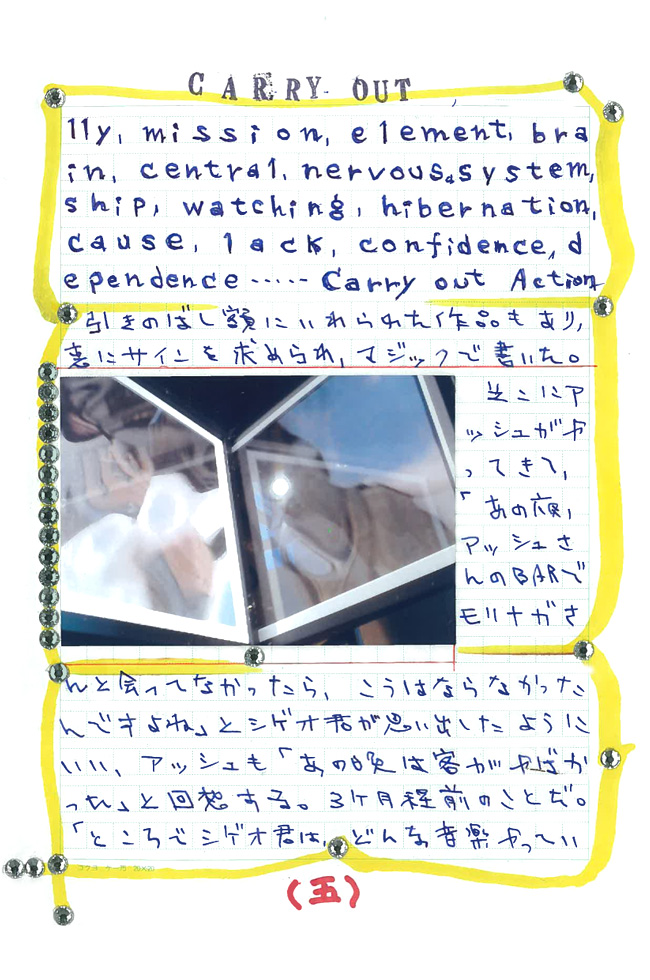 CARRY OUT
lly, mission, element, bra
in, central, nervous system,
ship, watching, hibernation,
cause, lack, confidence, d
ependence ····· Carry out Action
引きのばし額にいれられた作品もあり、
裏にサインを求められ、マジックで書いた。
そこにア
ッシュがや
ってきて、
「あの夜、
アッシュさ
んのBARで
モリナガさ
んと会ってなかったら、こうはならなかった
んですよね」とシゲオ君が思い出したように
いい、アッシュも「あの晩は客がやばか
った」と回想する。3ヶ月程前のことだ。
「ところでシゲオ君は、どんな音楽やってい
コクヨ ケ-75 20×20
(五)